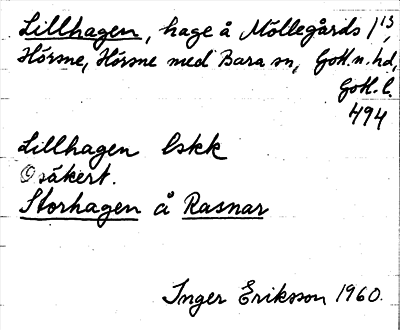 Lillhagen, hage å Möllegårds 1¹³,
Hörsne, Hörsne med Bara sn, Gotl. n. hd,
Gotl. l.
494
Lillhagen Eskk
Osäkert.
Storhagen å Rasnar
Inger Eriksson 1960.